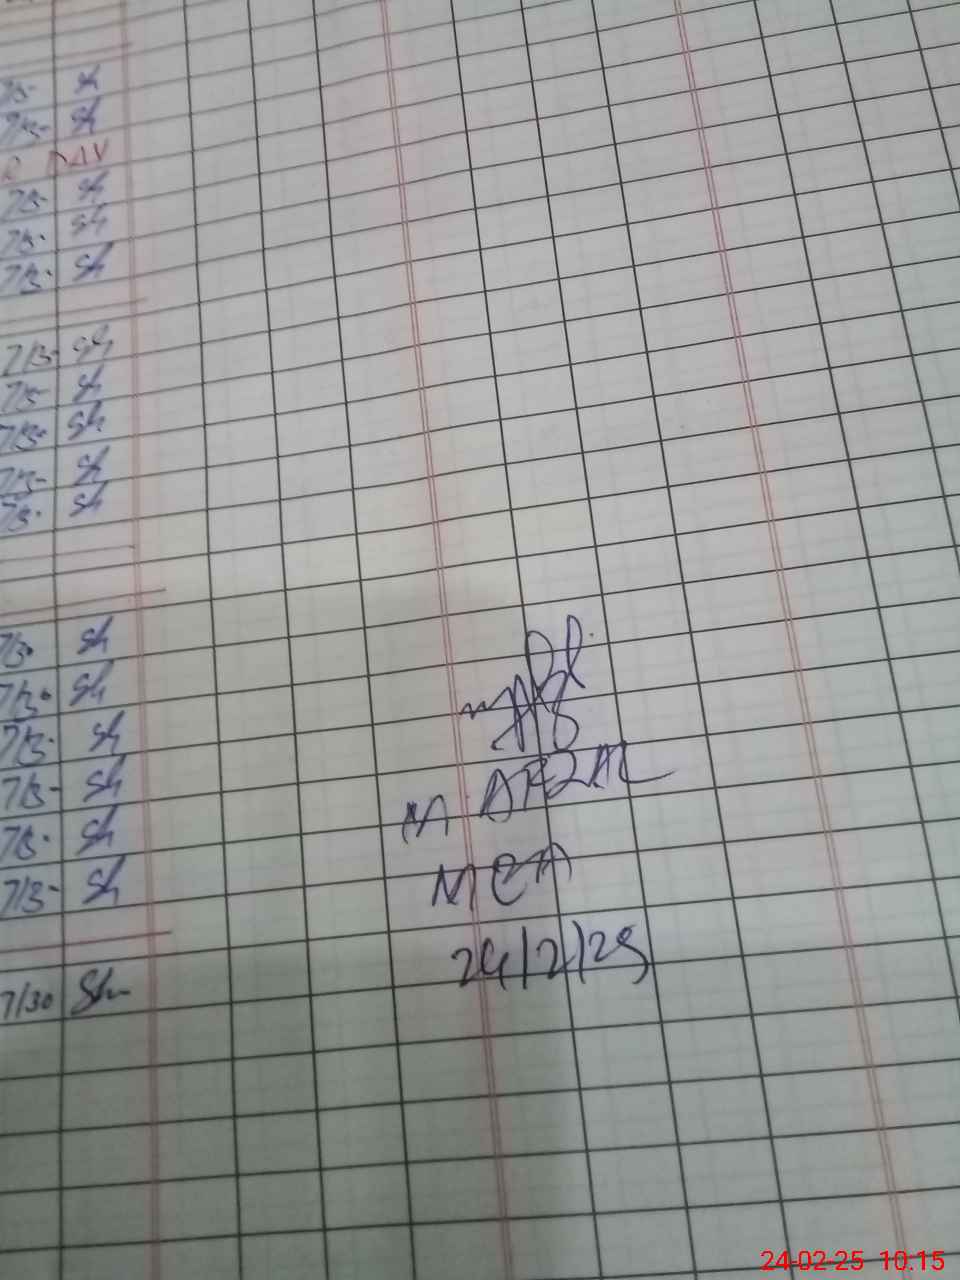 7/3- Sh
7/3- Sh
DAY
7/3- Sh
7/3- Sh
7/3- Sh
7/3- Sh
7/3- Sh
7/3- Sh
7/3- Sh
7/3- Sh
7/30 Sh
7/30 Sh
7/3- Sh
7/3- Sh
7/3- Sh
7/3- Sh
7/30 Sh
M. AFZAL
MEA
24/2/25
24-02-25 10:15